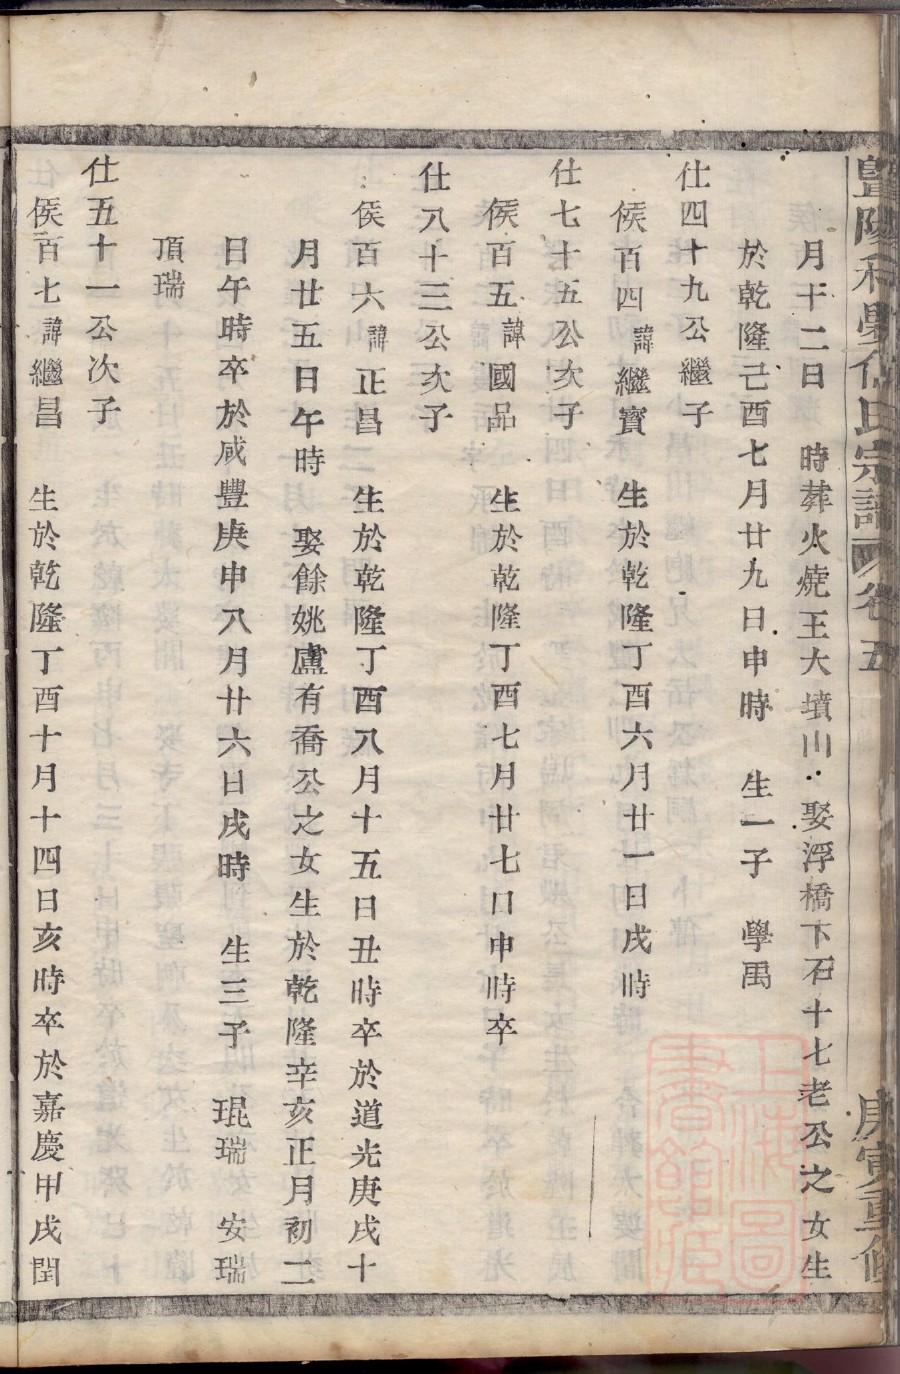 暨陽和㽥傅氏宗譜 卷五 庚寅重修
月十二日 時葬火燒王大墳山 娶浮橋下石十七老公之女生
於乾隆己酉七月廿九日申時 生一子 學禹
仕四十九公繼子
侯百四諱繼寶 生於乾隆丁酉六月廿一日戌時
仕七十五公次子
侯百五諱國品 生於乾隆丁酉七月廿七口申時卒
仕八十三公次子
侯百六諱正昌 生於乾隆丁酉八月十五日丑時卒於道光庚戌十
月廿五日午時 娶餘姚盧有喬公之女生於乾隆辛亥正月初二
日午時卒於咸豐庚申八月廿六日戌時 生三子 琨瑞 安瑞
頂瑞
仕五十一公次子
侯百七諱繼昌 生於乾隆丁酉十月十四日亥時卒於嘉慶甲戌閏
上海圖書館藏